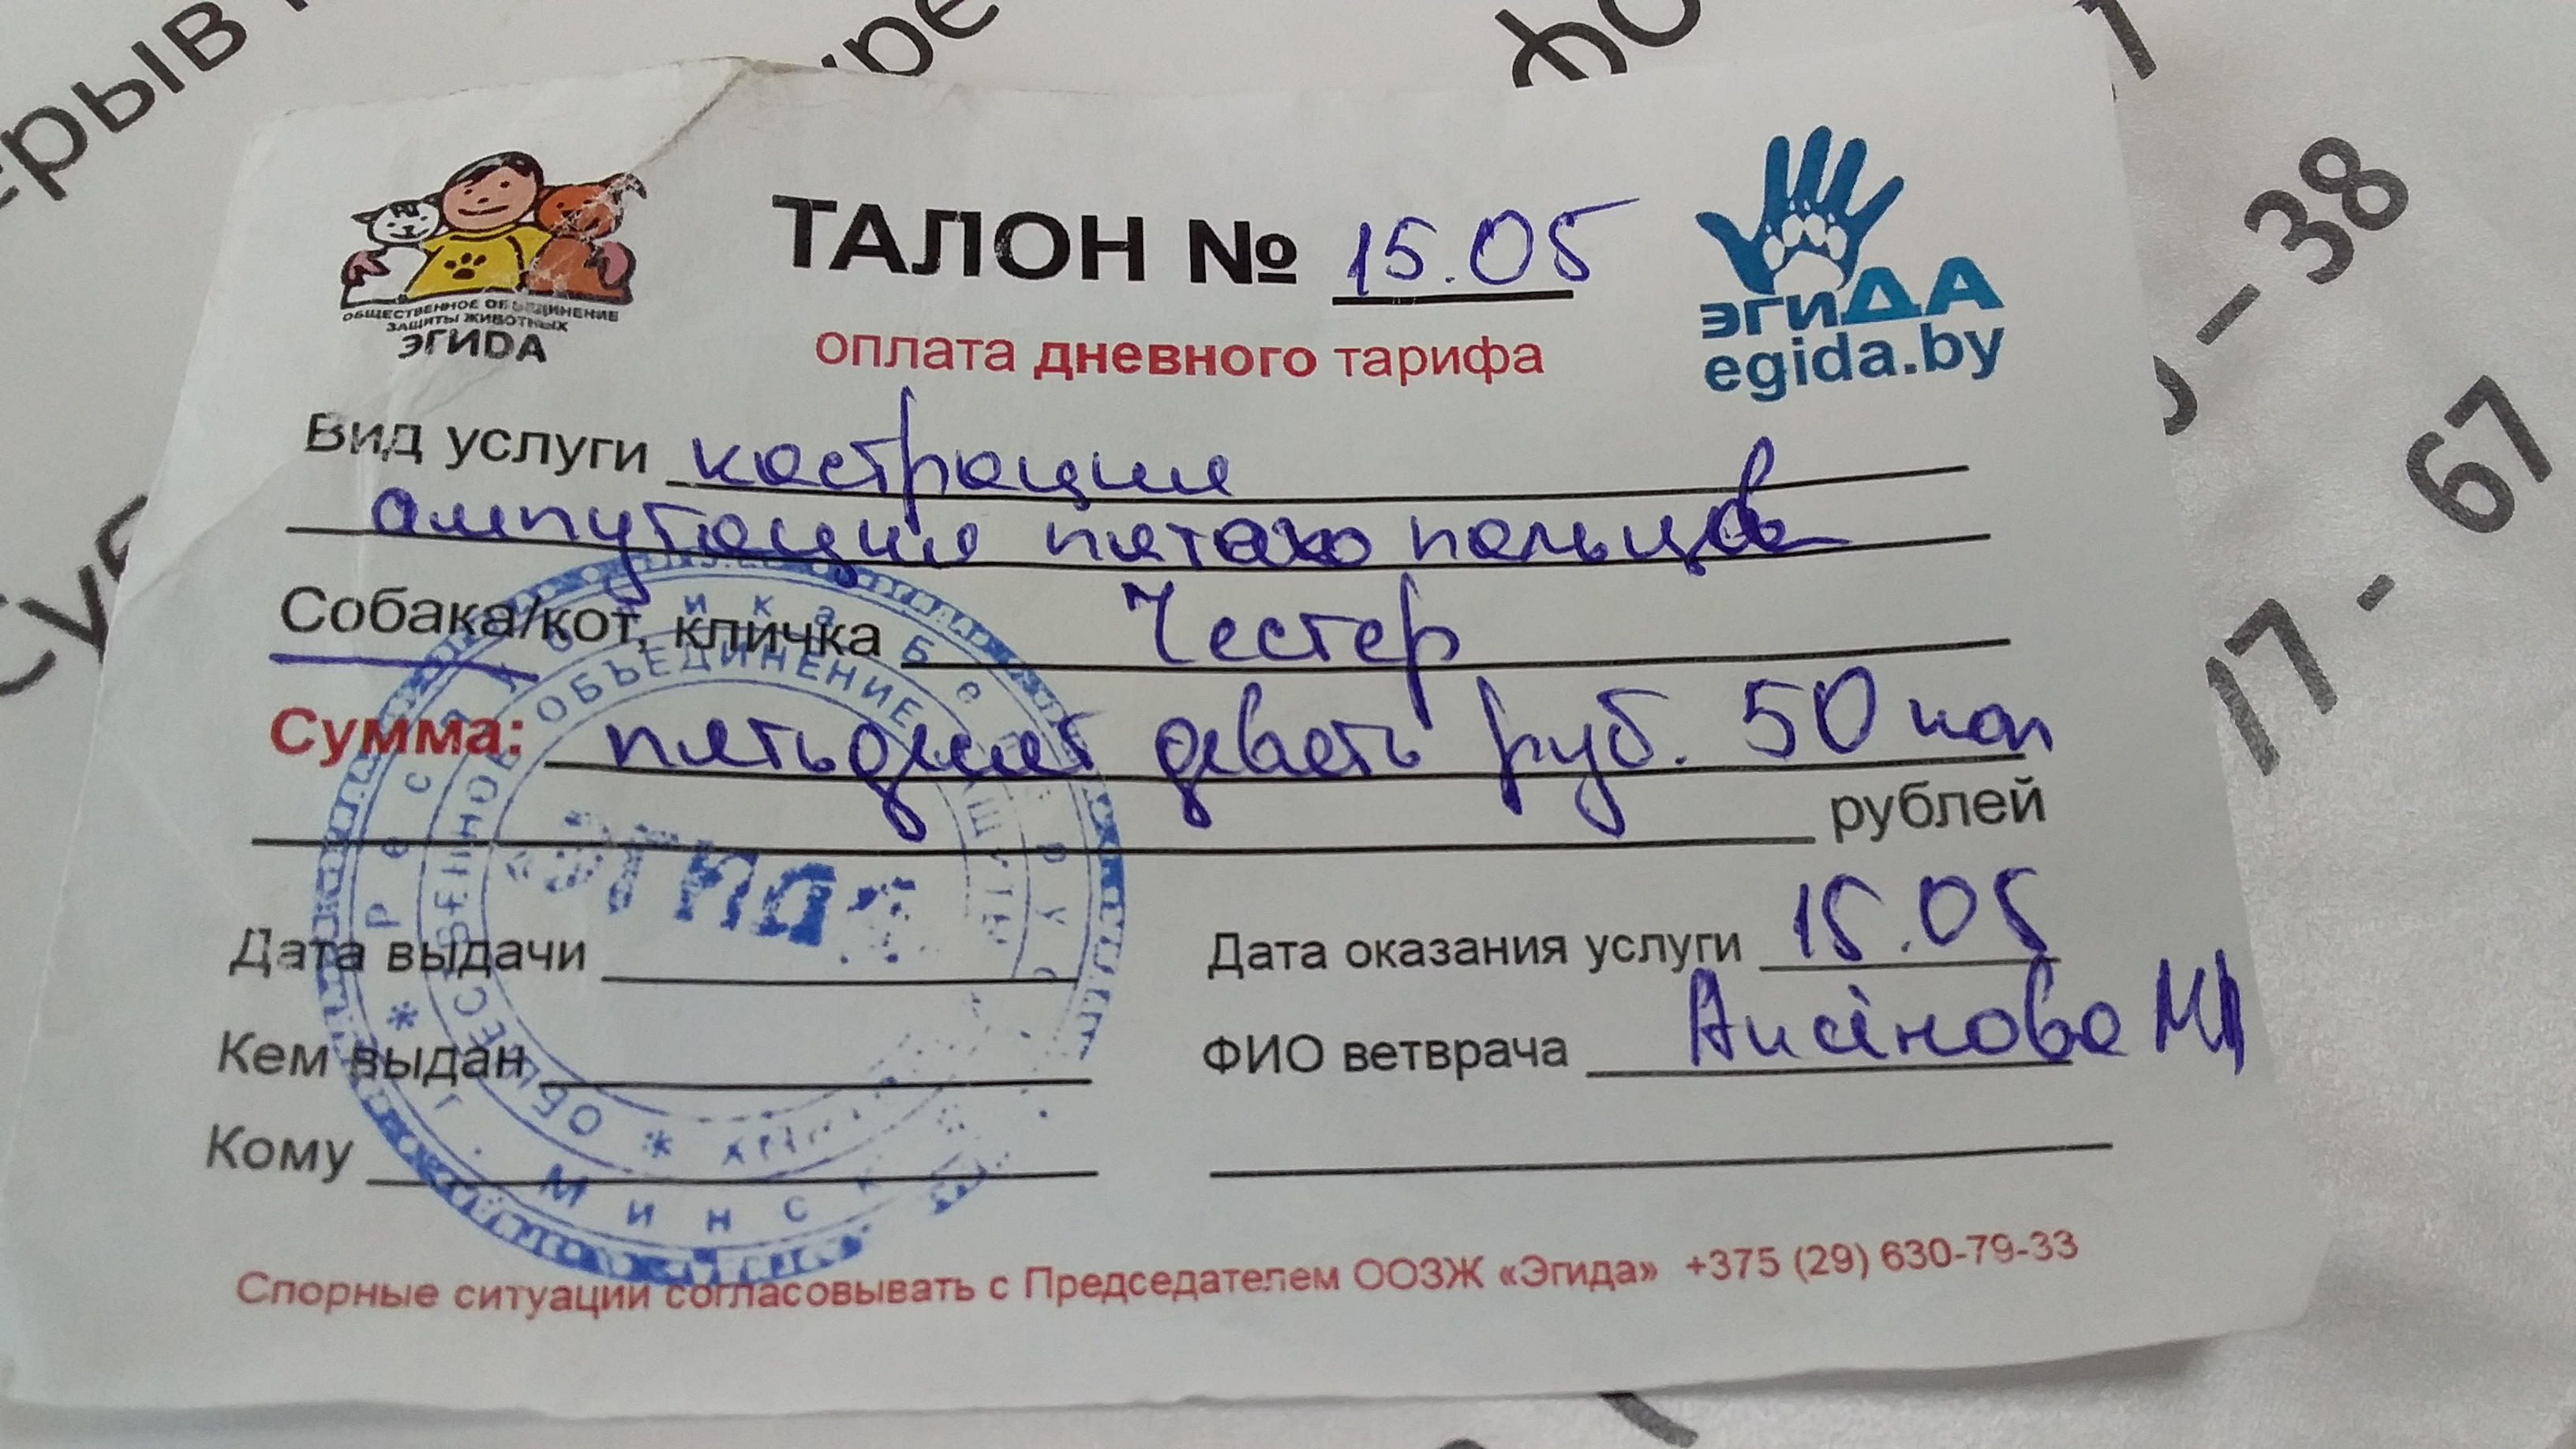 ТАЛОН № 15.05
оплата дневного тарифа
ОБЩЕСТВЕННОЕ ОБЪЕДИНЕНИЕ
ЗАЩИТЫ ЖИВОТНЫХ
ЭГИDА
ЭГИДА
egida.by
Вид услуги кастрация
ампутация пятого пальца
Собака/кот, кличка Честер
Сумма: пятьдесят девять руб. 50 коп
рублей
Дата выдачи
Дата оказания услуги 15.05
Кем выдан
ФИО ветврача
Кому
Спорные ситуации согласовывать с Председателем ООЗЖ «Эгида» +375 (29) 630-79-33
Республика Беларусь
г. Минск
ОБЩЕСТВЕННОЕ ОБЪЕДИНЕНИЕ
38
17-67